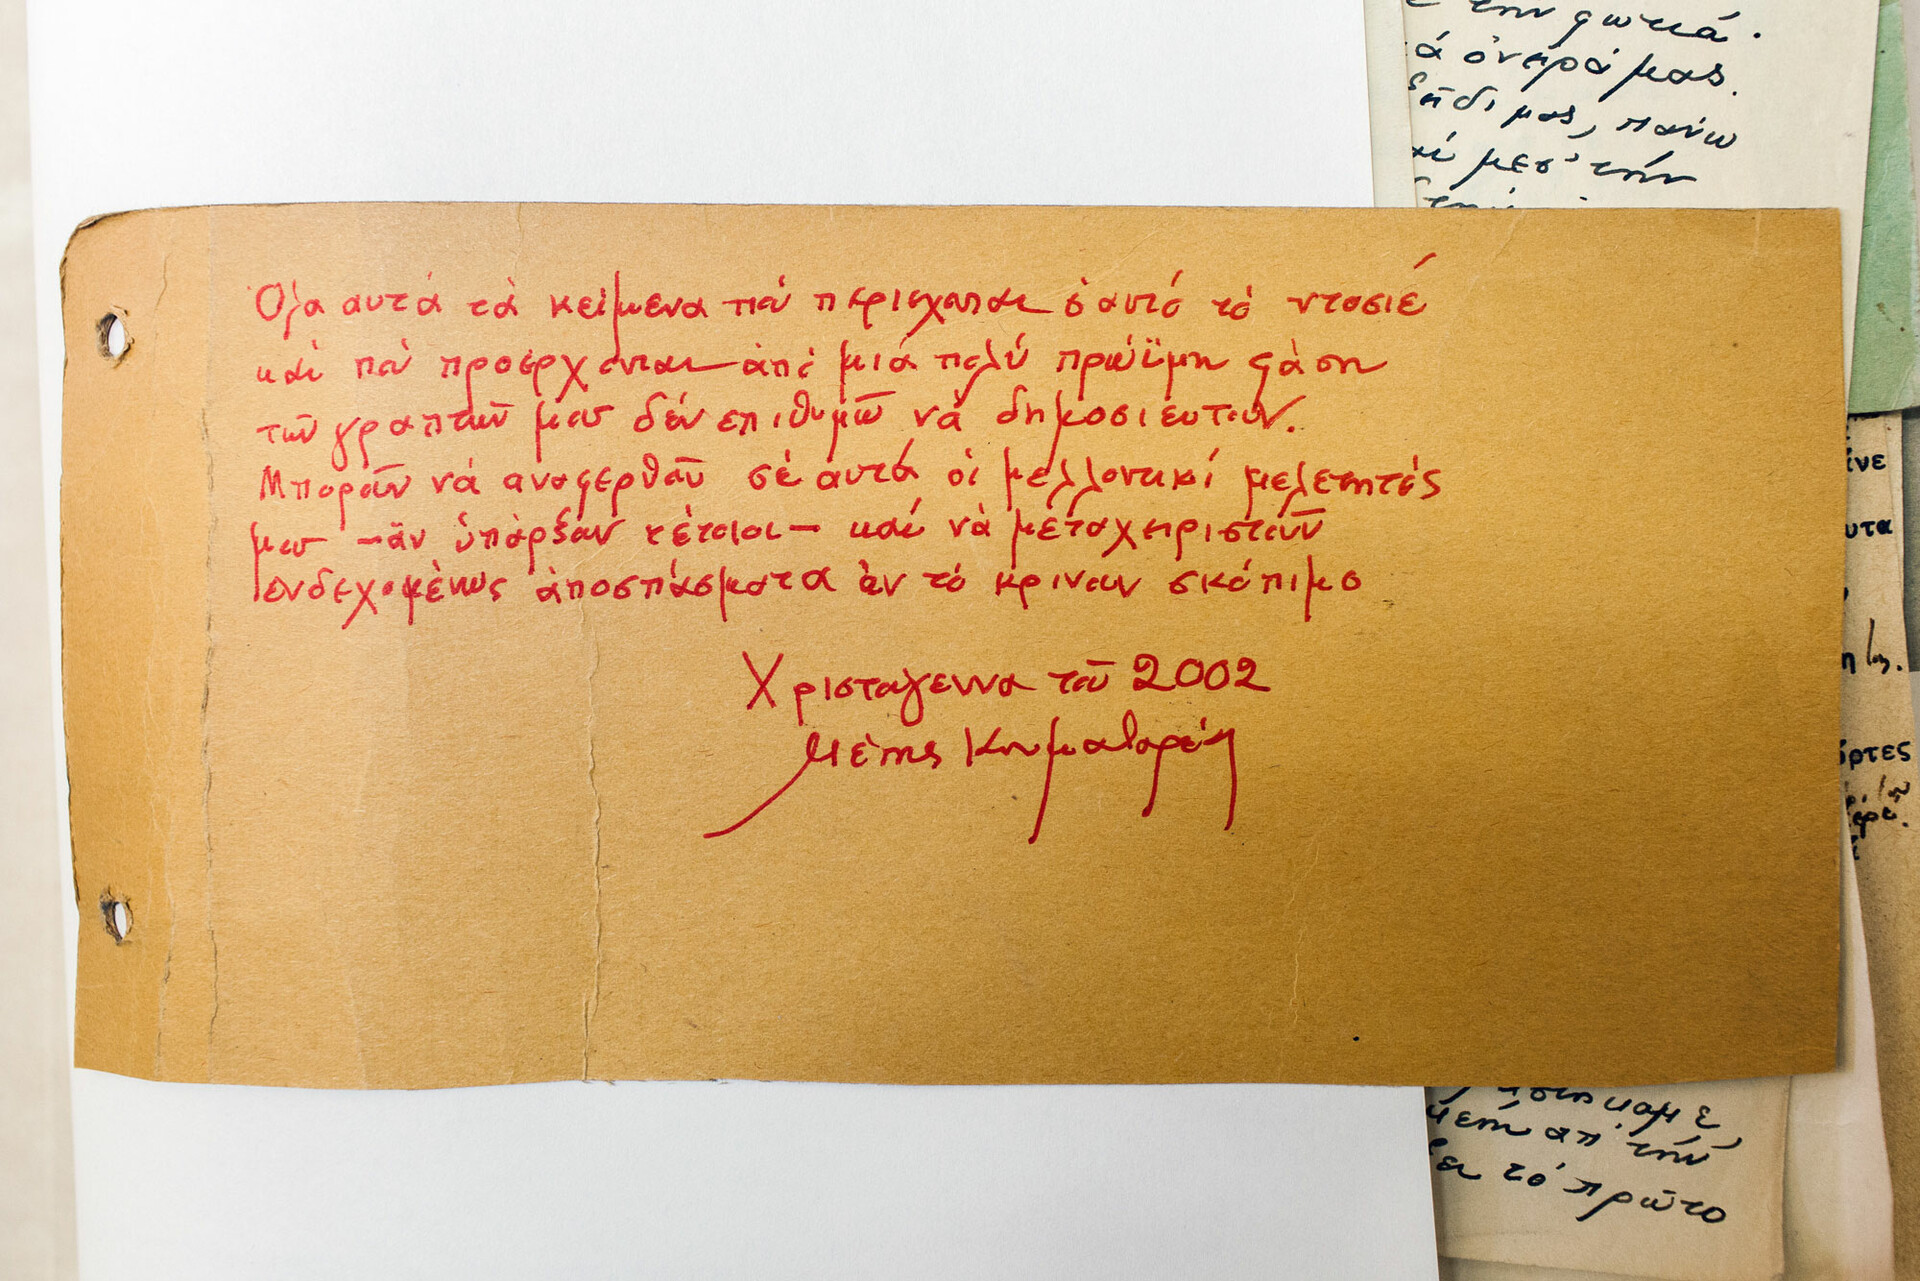 Ὅλα αυτά τὰ κείμενα ποὺ περιέχονται σ' αυτό τὸ ντοσιέ
καὶ ποὺ προέρχονται ἀπὸ μιά πολύ πρώϊμη φάση
τῶν γραπτῶν μου δέν επιθυμῶ νὰ δημοσιευτοῦν.
Μποροῦν νά αναφερθοῦν σέ αυτά οἱ μελλοντικοί μελετητές
μου – ἄν ὑπάρξουν τέτοιοι – καί νὰ μεταχειριστοῦν
ενδεχομένως ἀποσπάσματα ἄν τό κρίνουν σκόπιμο
Χριστουγεννα τοῦ 2002
Μένης Κουμανταρέας
την φωτιά.
ά όνειρά μας.
μας, πάνω
αί μεσ' την
ίνε
υτα
όρτες
απ' την
τὸ πρῶτο